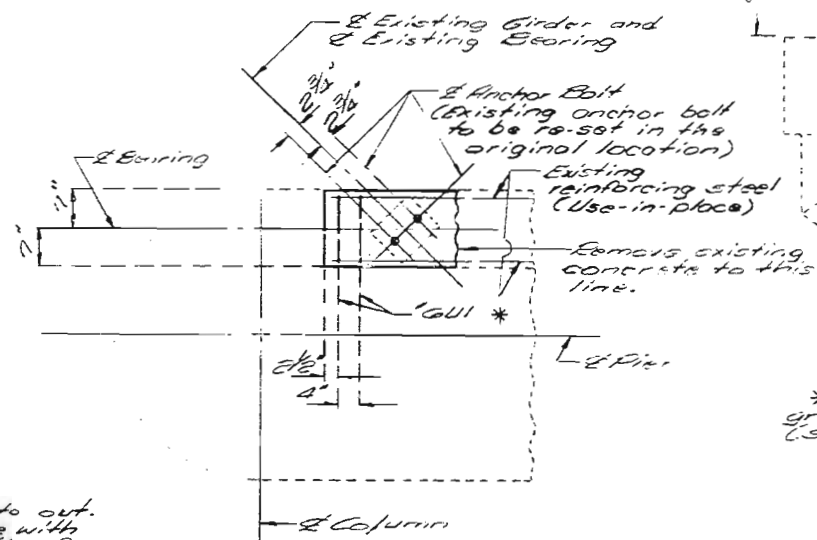 ℄ Existing Girder and
℄ Existing Bearing
2¾"
2¾"
℄ Anchor Bolt
(Existing anchor bolt
to be re-set in the
original location)
℄ Bearing
Existing
reinforcing steel
(Use-in-place)
7"
7"
Remove existing
concrete to this
line.
*
2½"
4"
℄ Pier
*
to out.
with
℄ Column